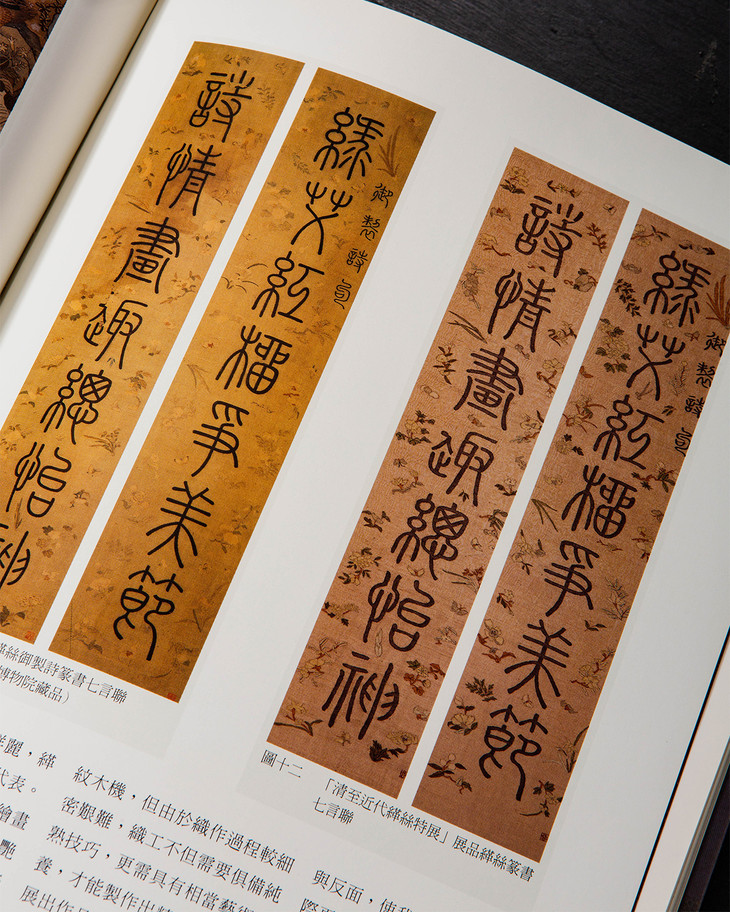 綠艾紅榴爭美節
御製詩句
詩情畫趣總怡神
緙絲御製詩篆書七言聯
博物院藏品）
綠艾紅榴爭美節
御製詩句
詩情畫趣總怡神
圖十二 「清至近代緙絲特展」展品緙絲篆書
七言聯
麗，緙
代表。
繪畫
艷
紋木機，但由於織作過程較細
密艱難，織工不但需要俱備純
熟技巧，更需具有相當藝術
養，才能製作出精
展出作品
與反面，使我
際